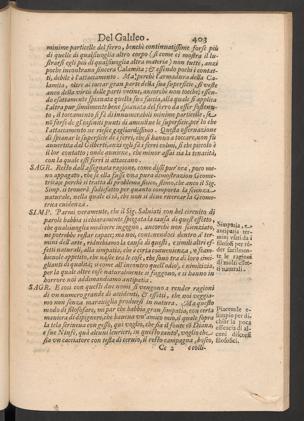 Del Galileo. 403
minime particelle del ferro, benchè continuatissime forse più
di quelle di qualsivoglia altro corpo (si come ci mostra il lu-
strarsi egli più di qualsivoglia altra materia) non tutti, anzi
pochi incontrano sincera Calamita; & essendo pochi i contat-
ti, debile è l'attaccamento. Ma perchè l'armadura della Ca-
lamita, oltre al toccar gran parte della sua superficie, si veste
anco della virtù delle parti vicine, ancorchè non tocche; essen-
do esattamente spianata quella sua faccia, alla quale si applica
l'altra pur similmente bene spianata del ferro da esser sostenu-
to, il toccamento si fà di innumerabili minime particelle, se
nò forse de gl'infiniti punti di amendue le superficie, per lo che
l'attaccamento ne riesce gagliardissimo. Questa osservazione
di spianar le superficie de i ferri, che si hanno a toccare, non fù
avvertita dal Gilberti, anzi egli fà i ferri colmi, sì che piccolo è
il lor contatto; onde avviene, che minor assai sia la tenacità,
con la quale essi ferri si attaccano.
SAGR. Resto dall'assegnata ragione, come dissi pur' ora, poco me-
no appagato, che se ella fusse una pura demostrazione Geome-
trica; e perchè si tratta di problema fisico, stimo, che anco il Sig.
Simp. si troverà sodisfatto per quanto comporta la scienza na-
turale, nella quale ei sà, che non si dee ricercar la Geome-
trica evidenza.
SIMP. Parmi veramente, che il Sig. Salviati con bel circuito di
parole habbia sì chiaramente spiegata la causa di quest'effetto,
che qualsivoglia mediocre ingegno, ancorchè non scienziato,
ne potrebbe restar capace; ma noi, contenendoci dentro a' ter-
mini dell'arte, riduchiamo la causa di questi, e simili altri ef-
fetti naturali, alla simpatia, che è certa convenienza, e scam-
bievole appetito, che nasce tra le cose, che sono tra di loro simi-
glianti di qualità; sì come all'incontro quell'odio, e nimicizia,
per la quale altre cose naturalmente si fuggono, e si hanno in
horrore noi addimandiamo antipatia.
Simpatia, e
antipatia ter-
mini usati da i
filosofi per ré-
der facilmen-
te le ragioni
di molti effet-
ti naturali.
SAGR. E così con questi due nomi si vengono a render ragioni
di un numero grande di accidenti, & effetti, che noi veggia-
mo non senza maraviglia prodursi in natura. Ma questo
modo di filosofare, mi par che habbia gran simpatia, con certa
maniera di dipignere, che haveva un'amico mio, il quale sopra
la tela scriveva con gesso, quì voglio, che sia il fonte con Diana,
e sue Ninfe, quà alcuni levrieri, in questo canto, voglio che
sia un cacciatore con testa di cervio, il resto campagna, bosco,
Piacevole e-
sempio per di-
chiarar la poca
efficacia di al-
cuni discorsi
filosofici.
Cc 2